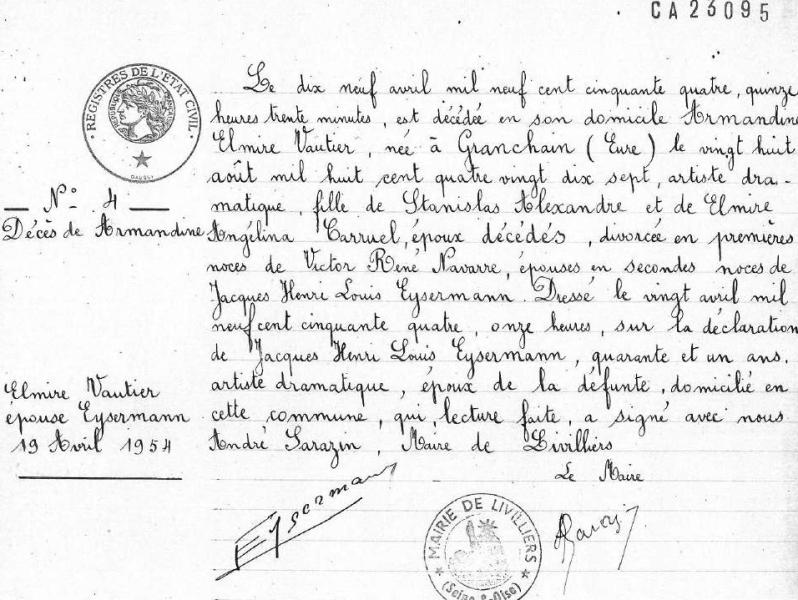 CA23095
REGISTRES DE L'ÉTAT CIVIL
Le dix neuf avril mil neuf cent cinquante quatre, quinze
heures trente minutes, est décédée en son domicile Armandine
Elmire Vautier, née à Granchain (Eure) le vingt huit
août mil huit cent quatre vingt dix sept, artiste dra-
matique, fille de Stanislas Alexandre et de Elmire
Angélina Carruel, époux décédés, divorcée en premières
noces de Victor René Navarre, épouses en secondes noces de
Jacques Henri Louis Eysermann. Dressé le vingt avril mil
neuf cent cinquante quatre, onze heures, sur la déclaration
de Jacques Henri Louis Eysermann, quarante et un ans,
artiste dramatique, époux de la défunte, domicilié en
cette commune, qui, lecture faite, a signé avec nous
André Sarazin, Maire de Livilliers
Le Maire
N° 4
Décès de Armandine
Elmire Vautier
épouse Eysermann
19 Avril 1954
Eysermann
MAIRIE DE LIVILLIERS
(Seine & Oise)